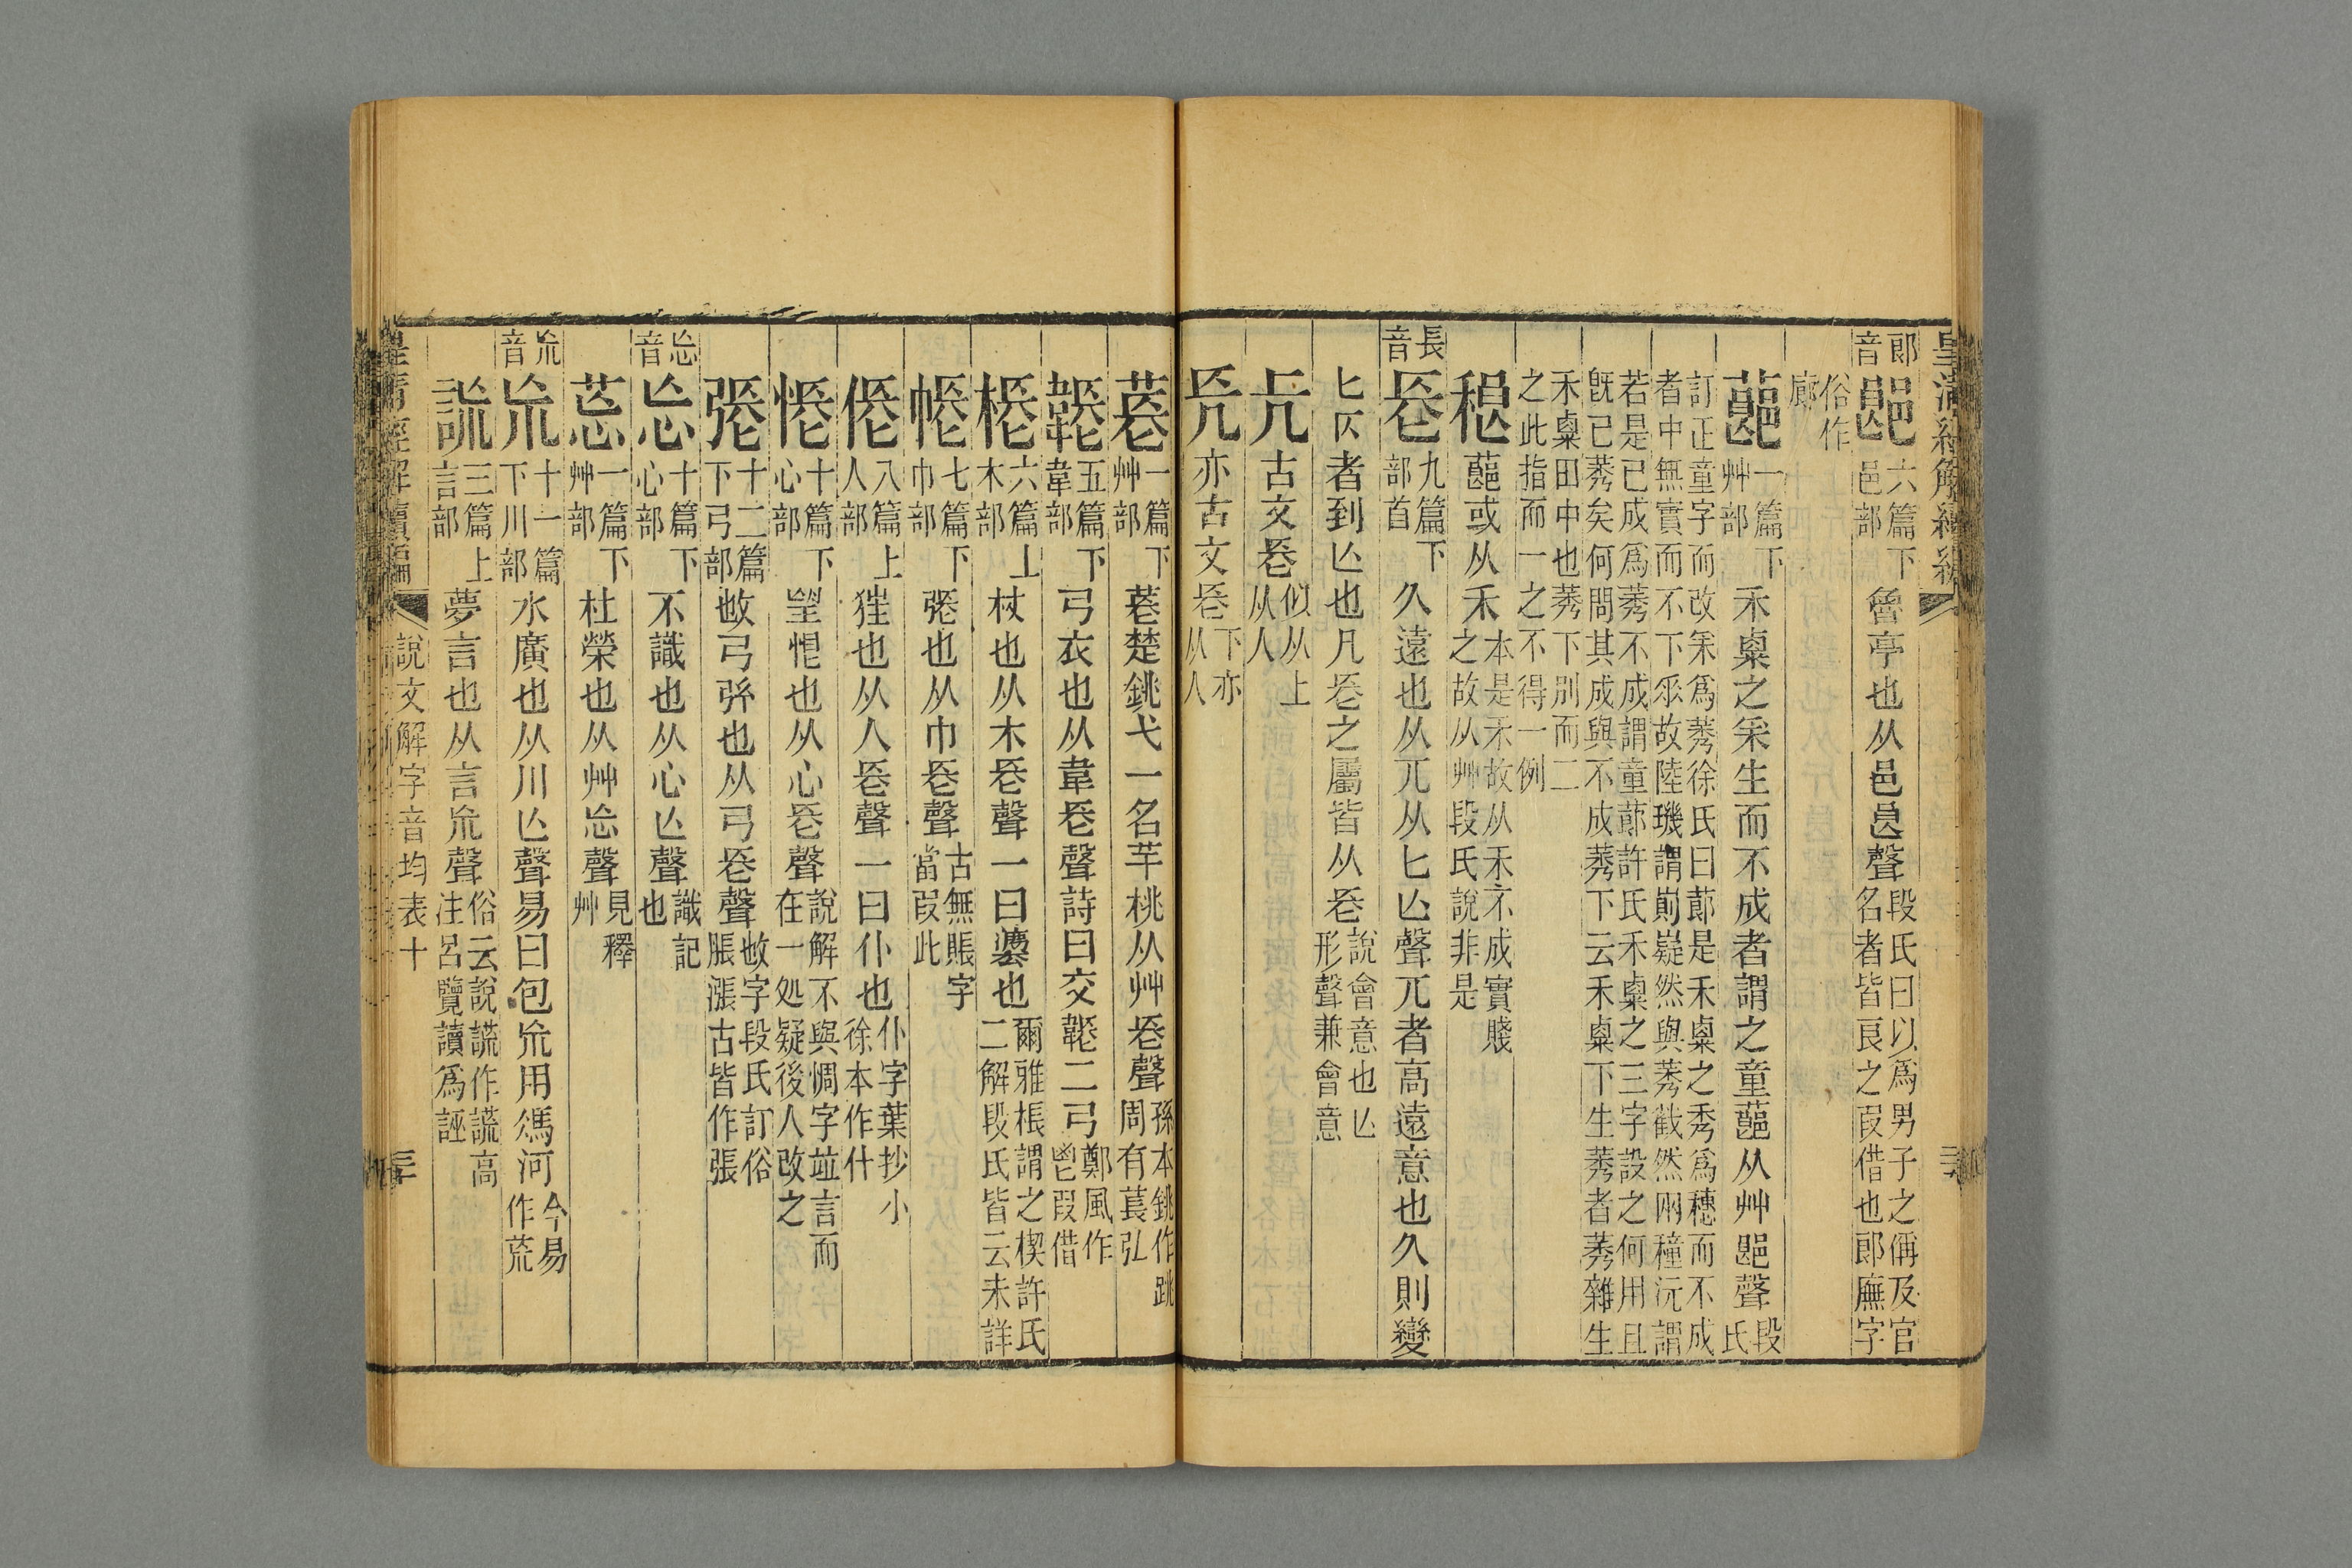 皇清經解續編
郎音
郎 六篇下邑部 魯亭也从邑良聲 段氏曰以爲男子之偁及官名者皆良之叚借也郎廡字
俗作廊
蓈 一篇下艸部 禾粟之采生而不成者謂之童蓈从艸郎聲 段氏
訂正童字而改采爲莠徐氏曰蓈是禾粟之秀爲穗而不成者中無實而不下𠂹故陸璣謂則嶷然與莠戳然兩種沅謂
若是已成爲莠不成謂童蓈許氏禾粟之三字設之何用且旣已莠矣何問其成與不成莠下云禾粟下生莠者莠雜生
禾粟田中也莠下別而二之此指而一之不得一例
稂 蓈或从禾 本是禾故从禾不成實賤之故从艸段氏說非是
長音
長 九篇下部首 久遠也从兀从匕亾聲兀者高遠意也久則變
匕兦者到亾也凡長之屬皆从長 說會意也亾形聲兼會意
古文長 似从上从人
亦古文長 下亦从人
萇 一篇下艸部 萇楚銚弋一名羊桃从艸長聲 孫本銚作跳周有萇弘
韔 五篇下韋部 弓衣也从韋長聲詩曰交韔二弓 鄭風作鬯叚借
棖 六篇上木部 杖也从木長聲一曰灋也 爾雅棖謂之楔許氏二解段氏皆云未詳
帳 七篇下巾部 張也从巾長聲 古無賬字當叚此
倀 八篇上人部 狂也从人長聲一曰仆也 仆字葉抄小徐本作什
悵 十篇下心部 望悢也从心長聲 說解不與惆字竝言而在一処疑後人改之
張 十二篇下弓部 㪤弓弦也从弓長聲 㪤字段氏訂俗脹漲古皆作張
忘音
忘 十篇下心部 不識也从心亾聲 識記也
莣 一篇下艸部 杜榮也从艸忘聲 見釋艸
㠩音
㠩 十一篇下川部 水廣也从川亾聲易曰包㠩用馮河 今易作荒
詤 三篇上言部 夢言也从言㠩聲 俗云說謊作謊高注呂覽讀爲誣
皇清經解續編
說文解字音均表十